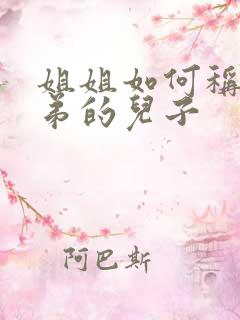 姐姐如何稱
弟的兒子
阿巴斯